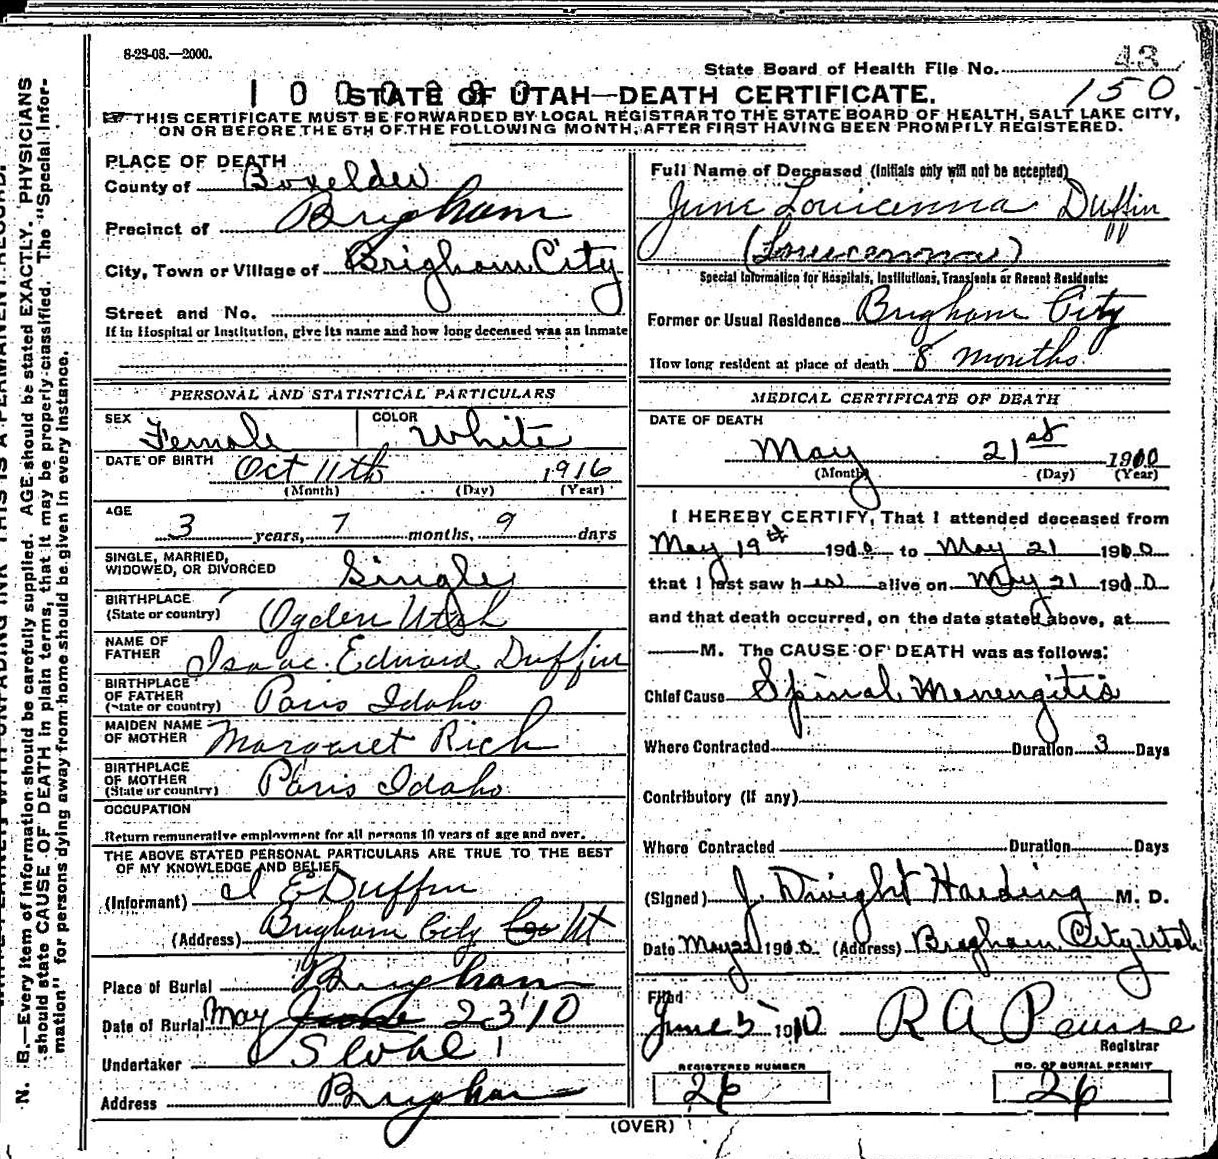 8-23-08.—2000.
State Board of Health File No. 43
150
STATE OF UTAH—DEATH CERTIFICATE.
THIS CERTIFICATE MUST BE FORWARDED BY LOCAL REGISTRAR TO THE STATE BOARD OF HEALTH, SALT LAKE CITY,
ON OR BEFORE THE 5TH OF THE FOLLOWING MONTH, AFTER FIRST HAVING BEEN PROMPTLY REGISTERED.
PLACE OF DEATH
County of Boxelder
Precinct of Brigham
City, Town or Village of Brigham City
Street and No.
If in Hospital or Institution, give its name and how long deceased was an inmate
PERSONAL AND STATISTICAL PARTICULARS
SEX Female COLOR White
DATE OF BIRTH Oct 11th 1916
(Month) (Day) (Year)
AGE
3 years, 7 months, 9 days
SINGLE, MARRIED,
WIDOWED, OR DIVORCED Single
BIRTHPLACE
(State or country) Ogden Utah
NAME OF
FATHER Isaac Edward Duffin
BIRTHPLACE
OF FATHER
(State or country) Paris Idaho
MAIDEN NAME
OF MOTHER Margaret Rich
BIRTHPLACE
OF MOTHER
(State or country) Paris Idaho
OCCUPATION
Return remunerative employment for all persons 10 years of age and over.
THE ABOVE STATED PERSONAL PARTICULARS ARE TRUE TO THE BEST
OF MY KNOWLEDGE AND BELIEF
(Informant) I E Duffin
(Address) Brigham City Ut
Place of Burial Brigham
Date of Burial May 23 '10
Undertaker
Address Brigham
Full Name of Deceased (Initials only will not be accepted)
June Louicanna Duffin
(Louicanna)
Special Information for Hospitals, Institutions, Transients or Recent Residents:
Former or Usual Residence Brigham City
How long resident at place of death 8 months
MEDICAL CERTIFICATE OF DEATH
DATE OF DEATH
May 21st 1910
(Month) (Day) (Year)
I HEREBY CERTIFY, That I attended deceased from
May 19th 1910 to May 21 1910
that I last saw her alive on May 21 1910
and that death occurred, on the date stated above, at
M. The CAUSE OF DEATH was as follows:
Chief Cause Spinal Menengitis
Where Contracted Duration 3 Days
Contributory (if any)
Where Contracted Duration Days
(Signed) J. Dwight Harding M. D.
Date May 22 1910 (Address) Brigham City Utah
Filed
June 5 1910 R A Pearse
Registrar
REGISTERED NUMBER
26
NO. OF BURIAL PERMIT
26
(OVER)
N. B.—Every item of information should be carefully supplied. AGE should be stated EXACTLY. PHYSICIANS
should state CAUSE OF DEATH in plain terms, that it may be properly classified. The "Special Infor-
mation" for persons dying away from home should be given in every instance.